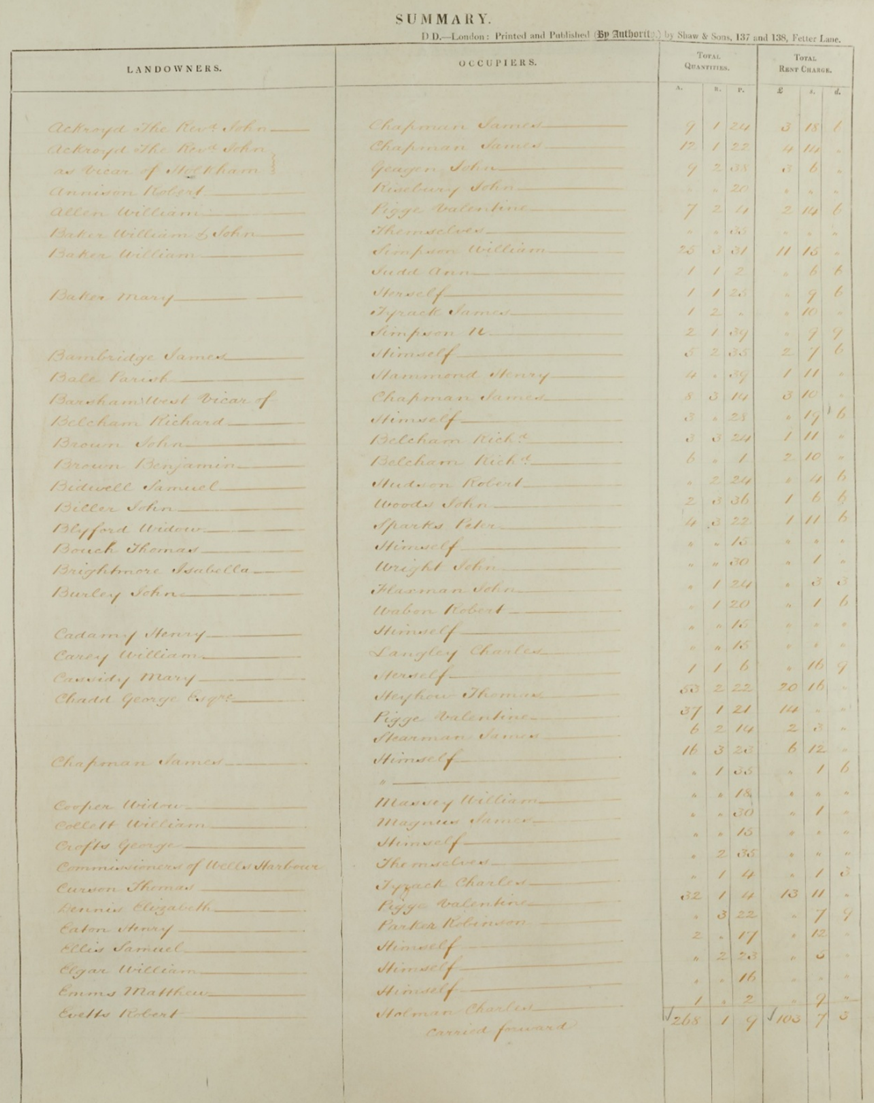 SUMMARY.
D D.—London: Printed and Published (By Authority) by Shaw & Sons, 137 and 138, Fetter Lane.
LANDOWNERS. OCCUPIERS. TOTAL QUANTITIES. TOTAL RENT CHARGE.
A. R. P. £ s. d.
Ackroyd The Revd. John Chapman James 9 1 24 3 18 6
Ackroyd The Revd. John Chapman James 12 1 22 4 14 "
as Vicar of John 9 2 38 3 6 "
Annison Robert Rosebury John " " 20 " " "
Allen William Pigge Valentine 7 2 4 2 14 6
Baker William & John Themselves " " 35 " " "
Baker William Simpson William 25 3 31 11 15 "
Judd Ann 1 1 2 " 6 6
Baker Mary Herself 1 1 25 " 9 6
Tyrack James 1 2 " " 10 "
Simpson 2 1 39 " 9 9
Bambridge James Himself 5 2 35 2 7 6
Bale Parish Hammond Henry 4 " 39 1 11 "
Barsham West Vicar of Chapman James 8 3 14 3 10 "
Belcham Richard Himself 3 " 28 " 19 6
Brown John Belcham Richd. 3 3 24 1 11 "
Brown Benjamin Belcham Richd. 6 " 1 2 10 "
Bidwell Samuel Hudson Robert " 2 24 " 4 6
Biller John Woods John 2 3 36 1 6 6
Blyford Widow Sparks Peter 4 3 22 1 11 6
Bouch Thomas Himself " " 15 " " "
Brightmore Isabella Wright John " " 30 " 1 "
Burley John Flaxman John " 1 24 " 3 3
Waben Robert " 1 20 " 1 6
Cadamy Henry Himself " " 15 " " "
Carey William Langley Charles " " 15 " " "
Cassidy Mary Herself 1 1 6 " 16 9
Chadd George Esqre Heyhow Thomas 53 2 22 20 16 "
Pigge Valentine 37 1 21 14 " "
Stearman James 6 2 14 2 3 "
Chapman James Himself 16 3 23 6 12 "
" " 1 35 " 1 6
Cooper Widow Massey William " " 18 " " "
Collett William Magnus James " " 30 " 1 "
Crofts George Himself " " 15 " " "
Commissioners of Wells Harbour Themselves " 2 35 " " "
Curson Thomas Tyzack Charles " 1 4 " 1 3
Dennis Elizabeth Pigge Valentine 32 1 4 13 11 "
Eaton Henry Parker Robinson " 3 22 " 7 9
Ellis Samuel Himself 2 " 17 " 12 "
Elgar William Himself " 2 23 " 5 "
Emms Matthew Himself " " 16 " " "
Evetts Robert Holman Charles 1 " 2 " 9 "
Carried forward 268 1 9 103 7 3